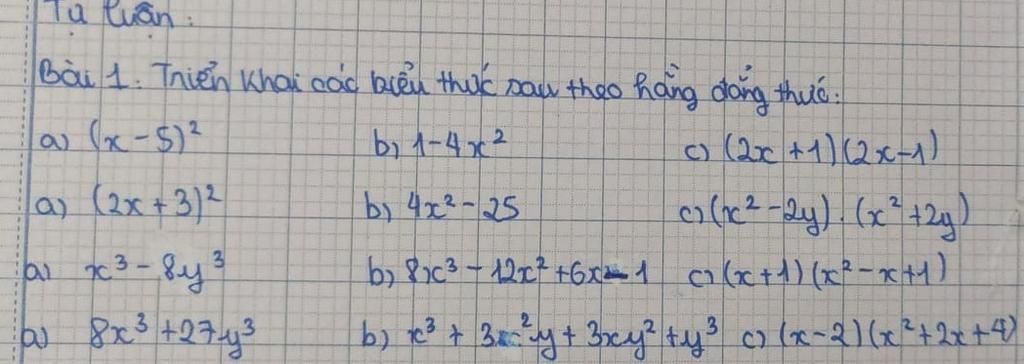 Tự luận:
Bài 1. Triển khai các biểu thức sau theo hằng đẳng thức:
a) (x - 5)² b) 1 - 4x² c) (2x + 1)(2x - 1)
a) (2x + 3)² b) 4x² - 25 c) (x² - 2y) . (x² + 2y)
a) x³ - 8y³ b) 8x³ - 12x² + 6x - 1 c) (x + 1)(x² - x + 1)
a) 8x³ + 27y³ b) x³ + 3x²y + 3xy² + y³ c) (x - 2)(x² + 2x + 4)